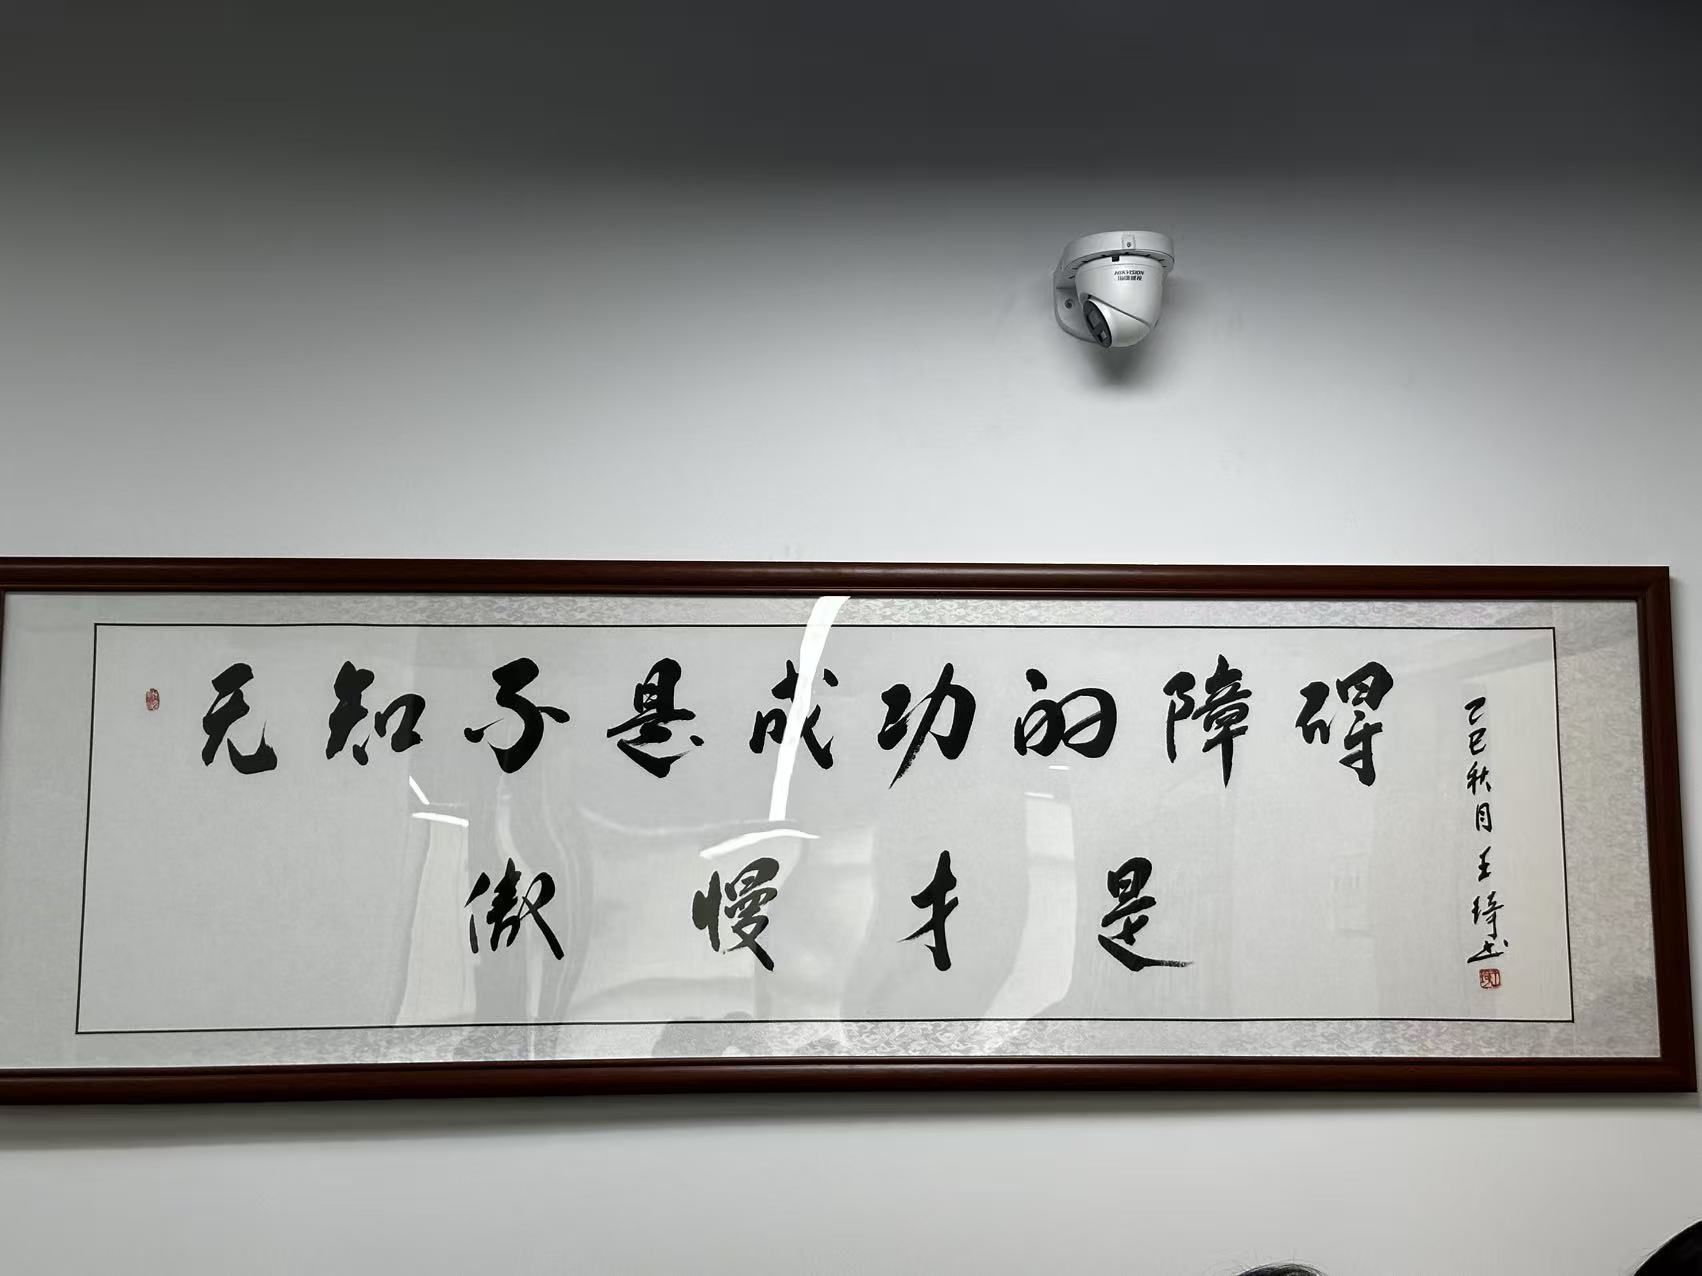 HIKVISION
海康威视
无知不是成功的障碍
傲慢才是
乙巳秋月 王琦书